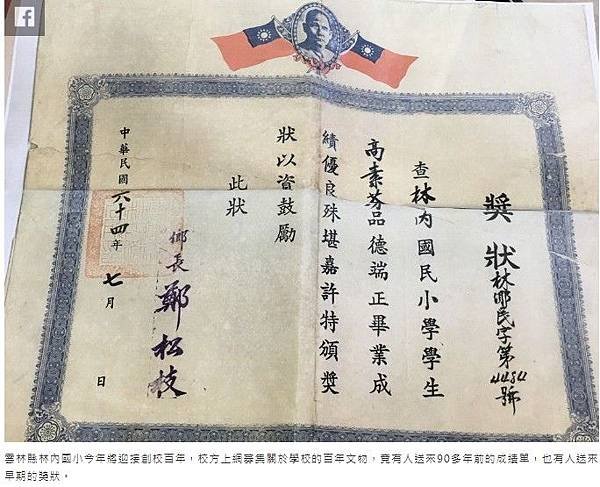 獎狀 林鄉民字第4484號
查林內國民小學學生
高素芬品德端正畢業成
績優良殊堪嘉許特頒獎
狀以資鼓勵
此狀
鄉長 鄭松枝
中華民國六十四年七月 日
雲林縣林內國小今年將迎接創校百年，校方上網募集關於學校的百年文物，竟有人送來90多年前的成績單，也有人送來
早期的獎狀。